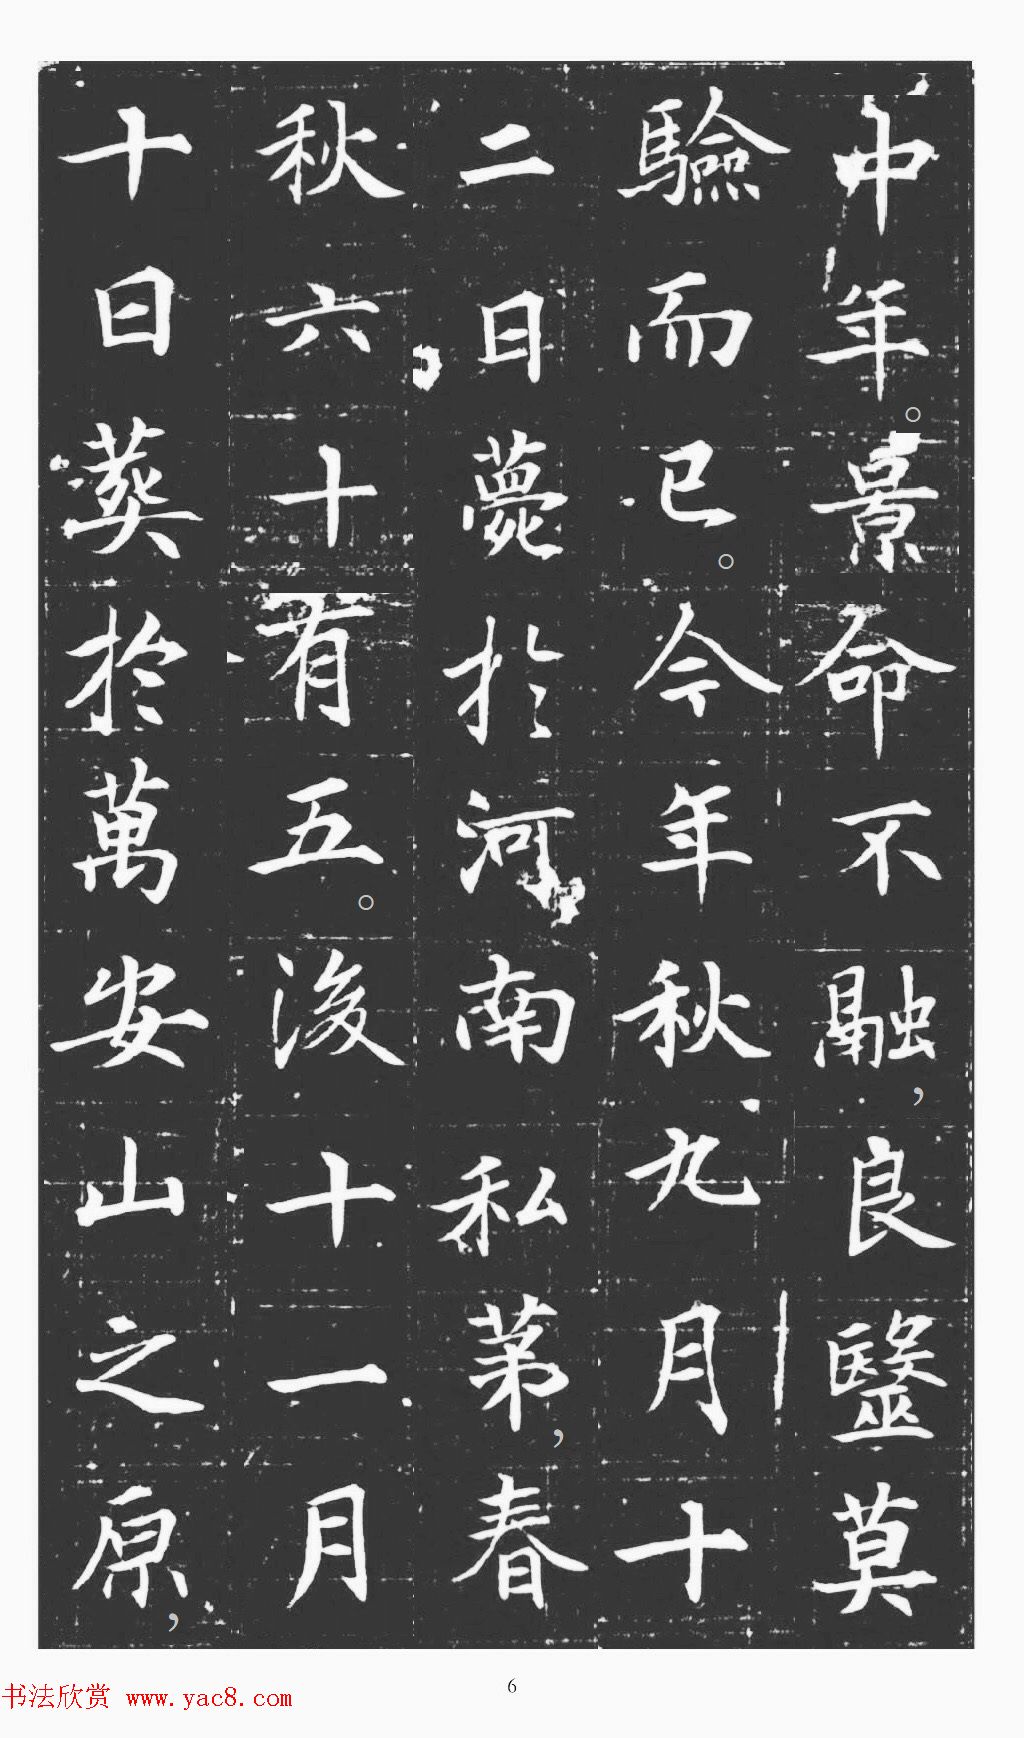 中年。景命不融，良醫莫
驗而已。今年秋九月十
二日薨於河南私苐，春
秋六十有五。後十一月
十日葬於萬安山之原，
6
书法欣赏 www.yac8.com